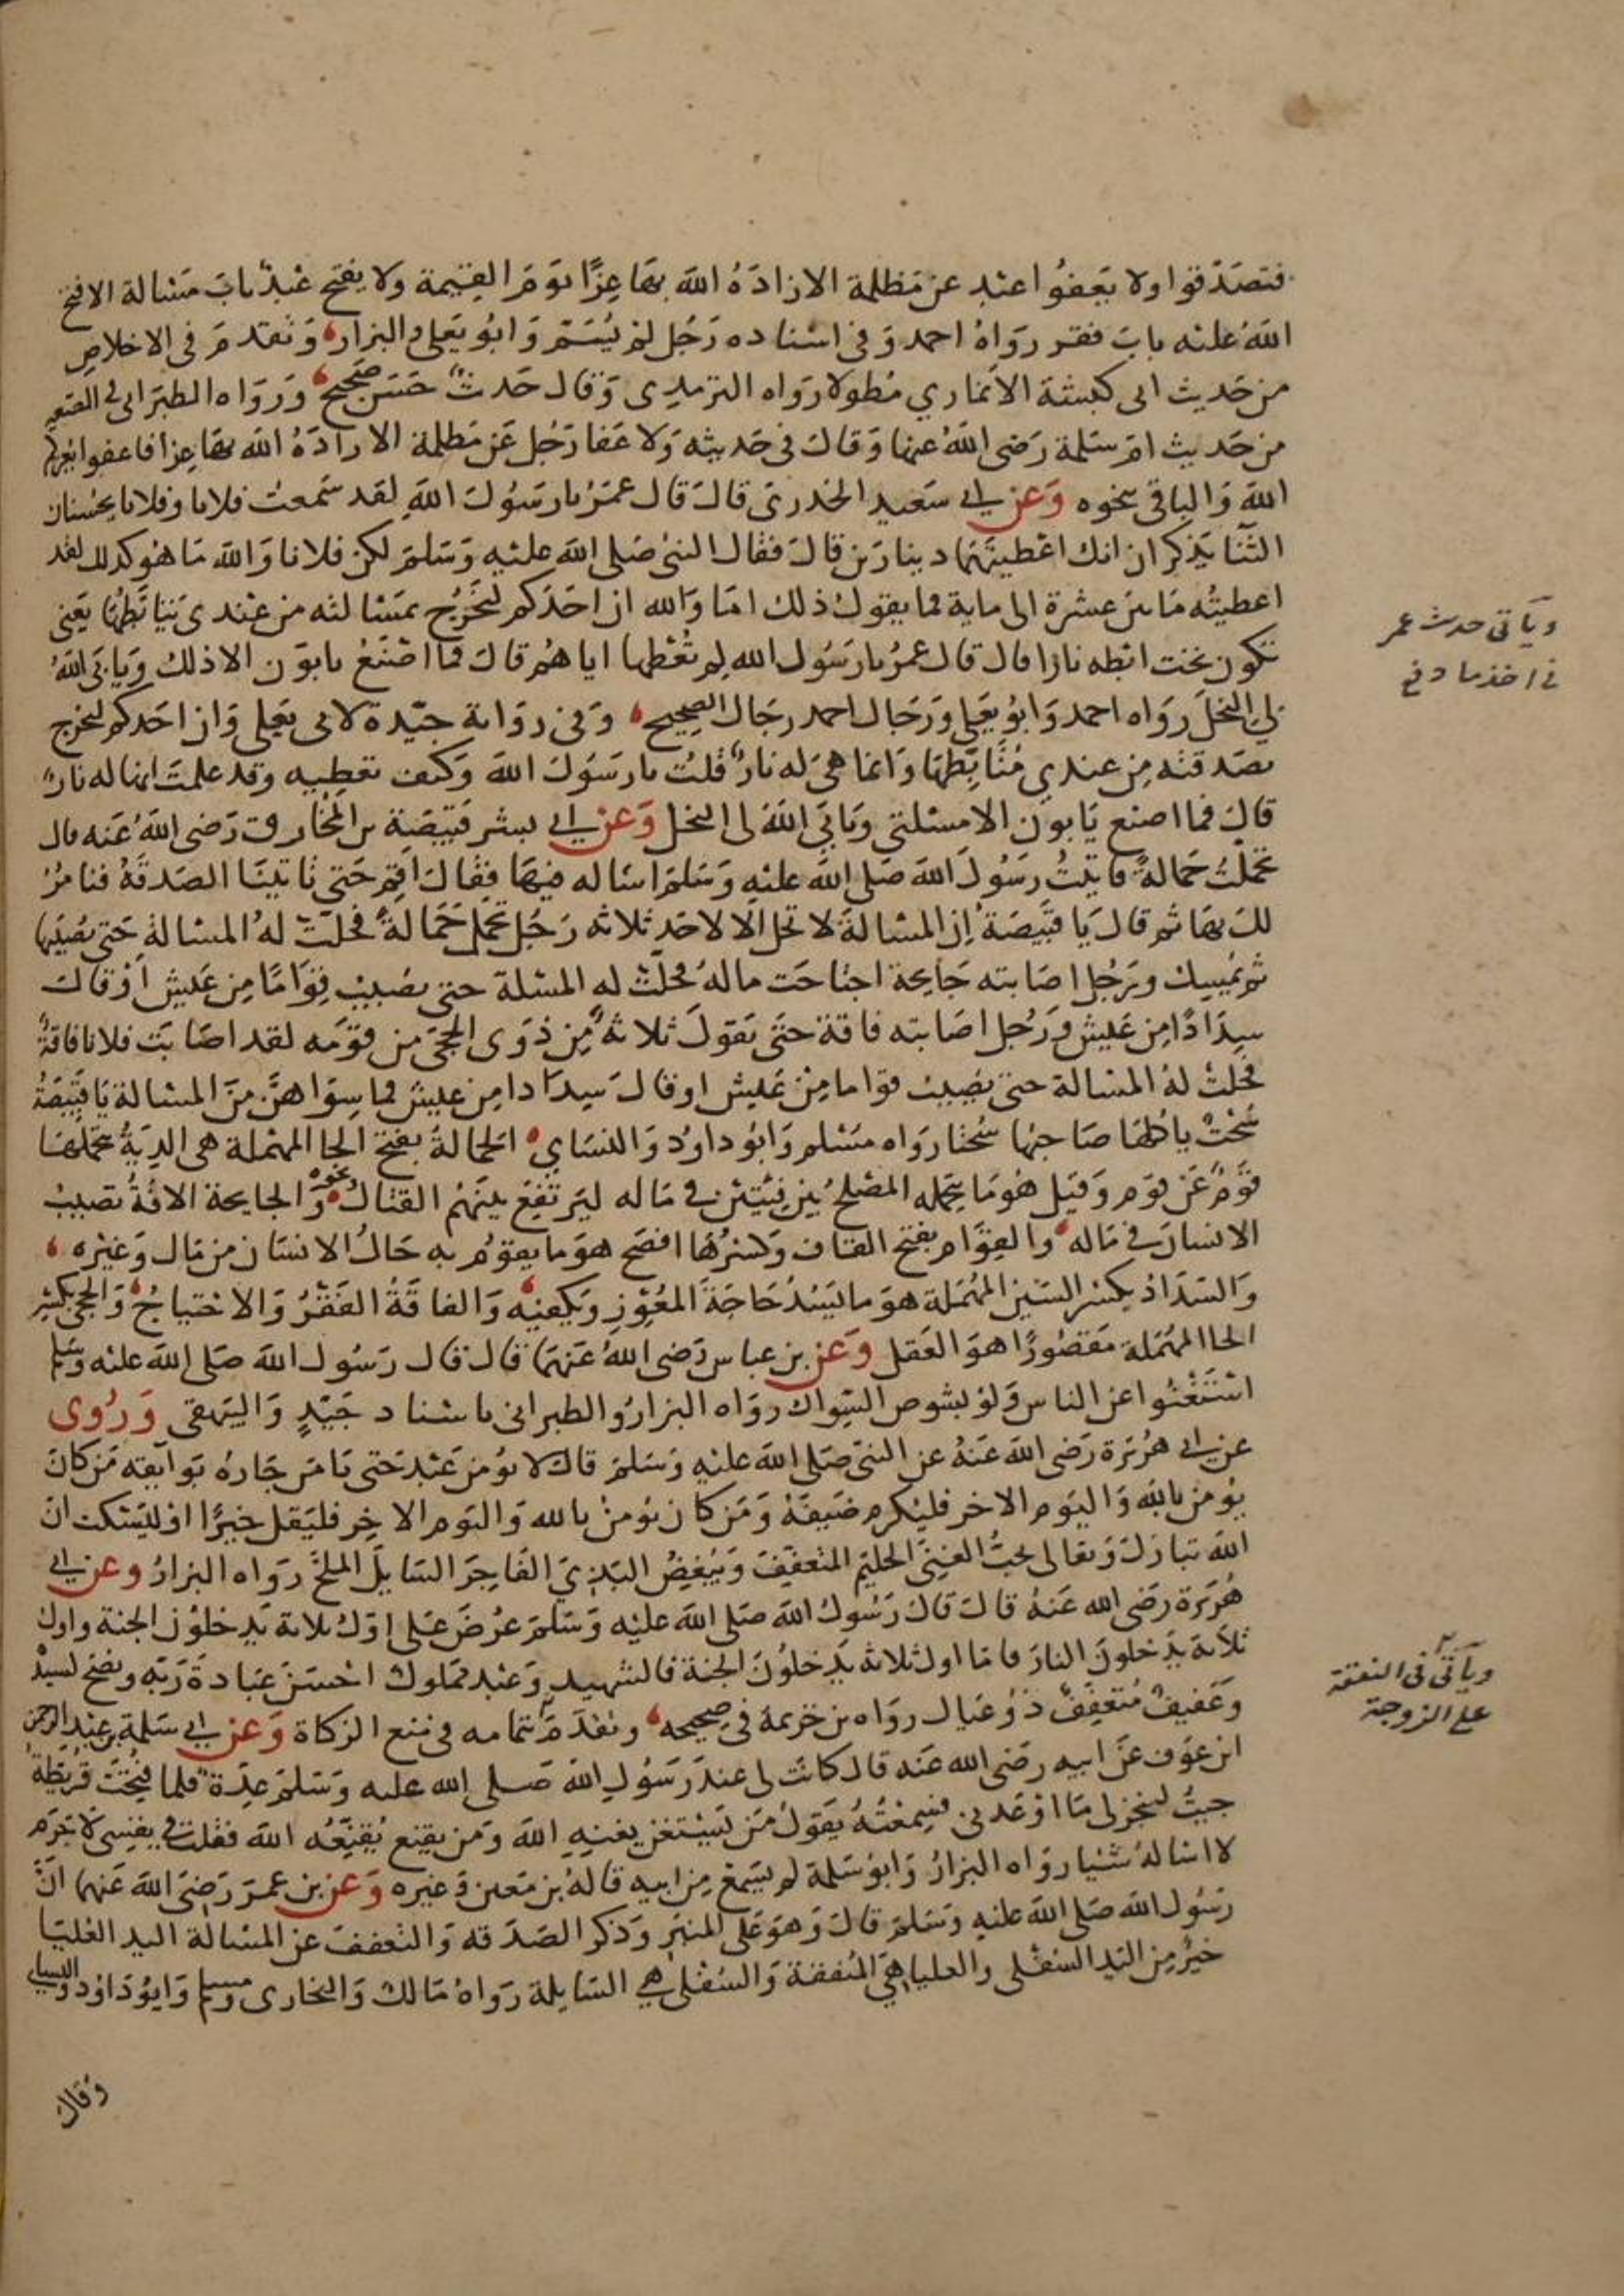 فتصدقوا ولا يعفوا عبد عن مظلمة الا زاده الله بها عزا يوم القيمة ولا يفتح عبد باب مسالة الا فتح
الله عليه باب فقر رواه احمد وفى اسناده رجل لم يسم وابو يعلى والبزار وتقدم فى الاخلاص
من حديث ابى كبشة الانماري مطولا رواه الترمدى وقال حديث حسن صحيح ورواه الطبرانى فى الصغير
من حديث ام سلمة رضى الله عنها وقال فى حديثه ولا عفا رجل عن مظلمة الا زاده الله بها عزا فاعفوا يعزكم
الله والباقى بنحوه وعن ابى سعيد الخدرى قال قال عمر يا رسول الله لقد سمعت فلانا وفلانا يحسنان
الثنا يذكران انك اعطيتهما دينارين قال فقال النبى صلى الله عليه وسلم لكن فلانا والله ما هو كدلك لقد
اعطيته ما بين عشرة الى ماية فما يقول ذلك اما والله ان احدكم ليخرج بمسالته من عندى يتابطها يعنى
تكون تحت ابطه نارا قال قال عمر يا رسول الله لم تعطها اياهم قال فما اصنع يابون الا ذلك ويابى الله
لى البخل رواه احمد وابو يعلى ورجال احمد رجال الصحيح وفى رواية جيدة لابى يعلى وان احدكم ليخرج
بصدقته من عندي متابطها وانما هى له نار قلت يا رسول الله وكيف تعطيه وقد علمت انها له نار
قال فما اصنع يابون الا مسئلتى ويابى الله لى البخل وعن ابى بشر قبيصة بن المخارق رضى الله عنه قال
تحملت حمالة فاتيت رسول الله صلى الله عليه وسلم اساله فيها فقال اقم حتى تاتينا الصدقة فنامر
لك بها ثم قال يا قبيصة ان المسالة لا تحل الا لاحد ثلاثه رجل تحمل حمالة فحلت له المسالة حتى يصيبها
ثم يمسك ورجل اصابته جايحة اجتاحت ماله فحلت له المسئلة حتى يصيب قواما من عيش او قال
سدادا من عيش ورجل اصابته فاقة حتى يقول ثلاثة من ذوى الحجى من قومه لقد اصابت فلانا فاقة
فحلت له المسالة حتى يصيب قواما من عيش او قال سدادا من عيش فما سواهن من المسالة يا قبيصة
سحت ياكلها صاحبها سحتا رواه مسلم وابو داود والنساي الحمالة بفتح الحا المهملة هى الدية يتحملها
قوم عن قوم وقيل هو ما يتحمله المصلح بين فيتين فى ماله ليرتفع بينهم القتال ونحوه والجايحة الافة تصيب
الانسان فى ماله والقوام بفتح القاف وكسرها افصح هو ما يقوم به حال الانسان من مال وغيره
والسداد بكسر السين المهملة هو ما يسد حاجة المعوز ويكفيه والفاقة الفقر والاحتياج والحجى بكسر
الحا المهملة مقصورا هو العقل وعن بن عباس رضى الله عنهما قال قال رسول الله صلى الله عليه وسلم
استغنوا عن الناس ولو بشوص السواك رواه البزار والطبرانى باسناد جيد والبيهقى وروى
عن ابى هريرة رضى الله عنه عن النبى صلى الله عليه وسلم قال لا يومن عبد حتى يامن جاره بوايقه من كان
يومن بالله واليوم الاخر فليكرم ضيفه ومن كان يومن بالله واليوم الاخر فليقل خيرا او ليسكت ان
الله تبارك وتعالى يحب الغنى الحليم المتعفف ويبغض البذي الفاجر السايل الملح رواه البزار وعن ابى
هريرة رضى الله عنه قال قال رسول الله صلى الله عليه وسلم عرض على اول ثلاثة يدخلون الجنة واول
ثلاثة يدخلون النار فاما اول ثلاثه يدخلون الجنة فالشهيد وعبد مملوك احسن عبادة ربه ونصح لسيده
وعفيف متعفف ذو عيال رواه بن خزيمة فى صحيحه وتقدم بتمامه فى منع الزكاة وعن ابى سلمة بن عبد الرحمن
ابن عوف عن ابيه رضى الله عنه قال كانت لى عند رسول الله صلى الله عليه وسلم عدة فلما فتحت قريظة
جيت لينجز لى ما اوعدنى فسمعته يقول من يستغن يغنيه الله ومن يقنع يقنعه الله فقلت فى نفسى لا جرم
لا اساله شيا رواه البزار وابو سلمة لم يسمع من ابيه قاله بن معين وغيره وعن بن عمر رضى الله عنهما ان
رسول الله صلى الله عليه وسلم قال وهو على المنبر وذكر الصدقه والتعفف عن المسالة اليد العليا
خير من اليد السفلى والعليا هى المنفقة والسفلى هى السايلة رواه مالك والبخارى ومسلم وابو داود والنسايى
وقال
وياتى حديث عمر
فى اخذ ما دفع
وياتى فى النفقة
على الزوجة